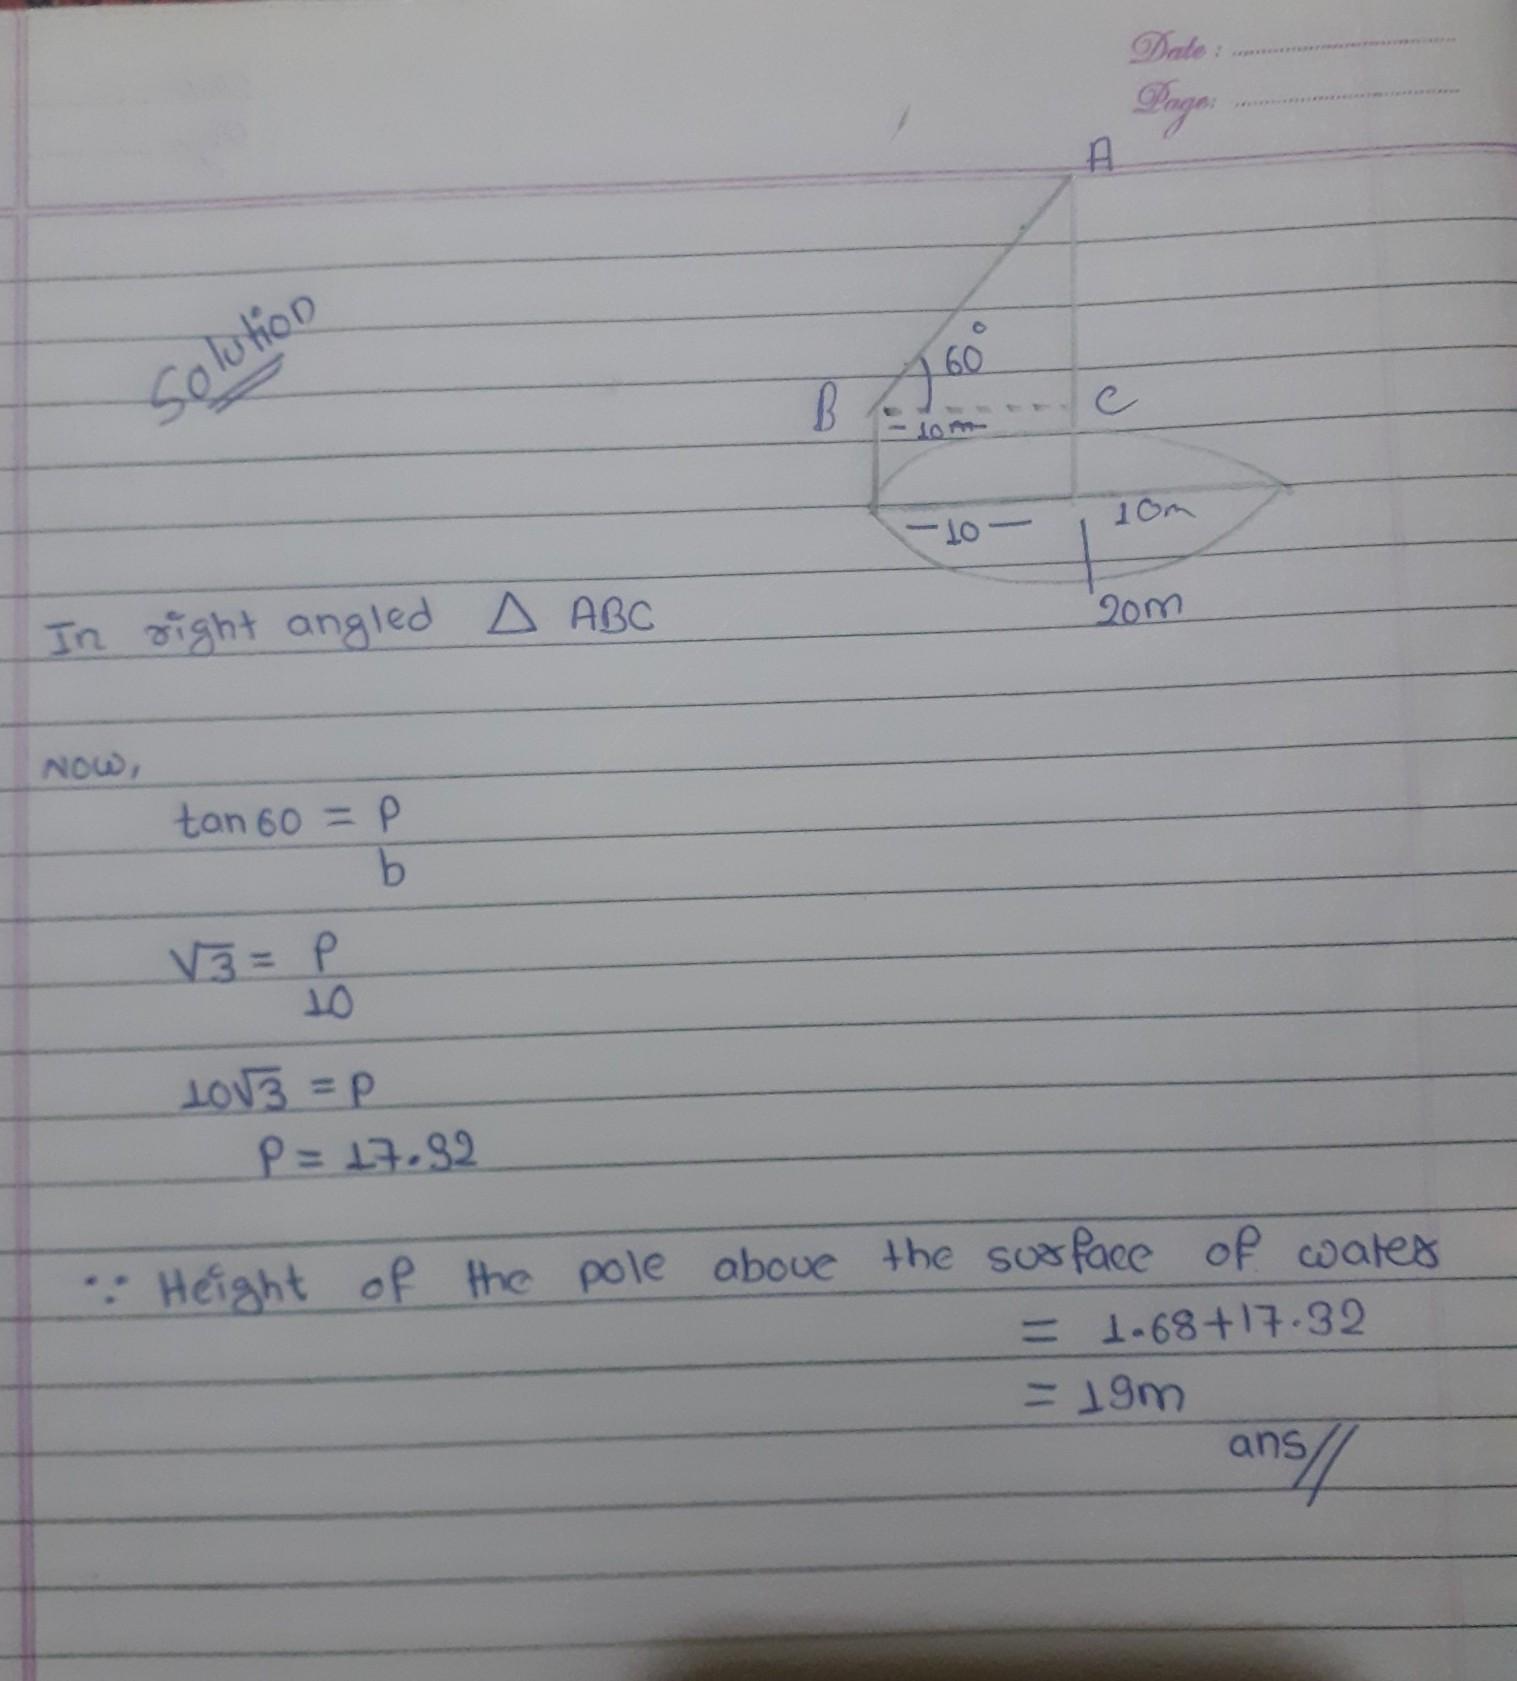 Date:
Page:
A
Solution
60°
B
C
- 10m
- 10 -
10m
20m
In right angled △ ABC
Now,
tan 60 = P
b
√3 = P
10
10√3 = P
P = 17.32
∵ Height of the pole above the surface of water
= 1.68+17.32
= 19m
ans//